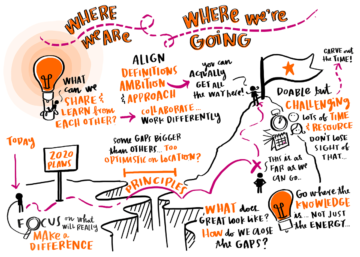 WHERE
we ARE
WHERE we're
GOING
WHAT
can we
SHARE &
LEARN from
EACH OTHER?
ALIGN
DEFINITIONS
AMBITION
& APPROACH
COLLABORATE...
WORK DIFFERENTLY
you can
ACTUALLY
GET ALL
the WAY here!
CARVE out
the TIME!
DOABLE but
CHALLENGING
LOTS of TIME
& RESOURCE
DON'T LOSE
SIGHT of
THAT...
TODAY
2020
PLANS
SOME GAPS BIGGER
than OTHERS... TOO
OPTIMISTIC on LOCATION?
PRINCIPLES
THIS is as
FAR as WE
CAN GO...
FOCUS on WHAT
will REALLY
MAKE a
DIFFERENCE
WHAT does
GREAT look LIKE?
HOW do WE CLOSE
the GAPS?
Go where the
KNOWLEDGE
is ... NOT JUST
the ENERGY...